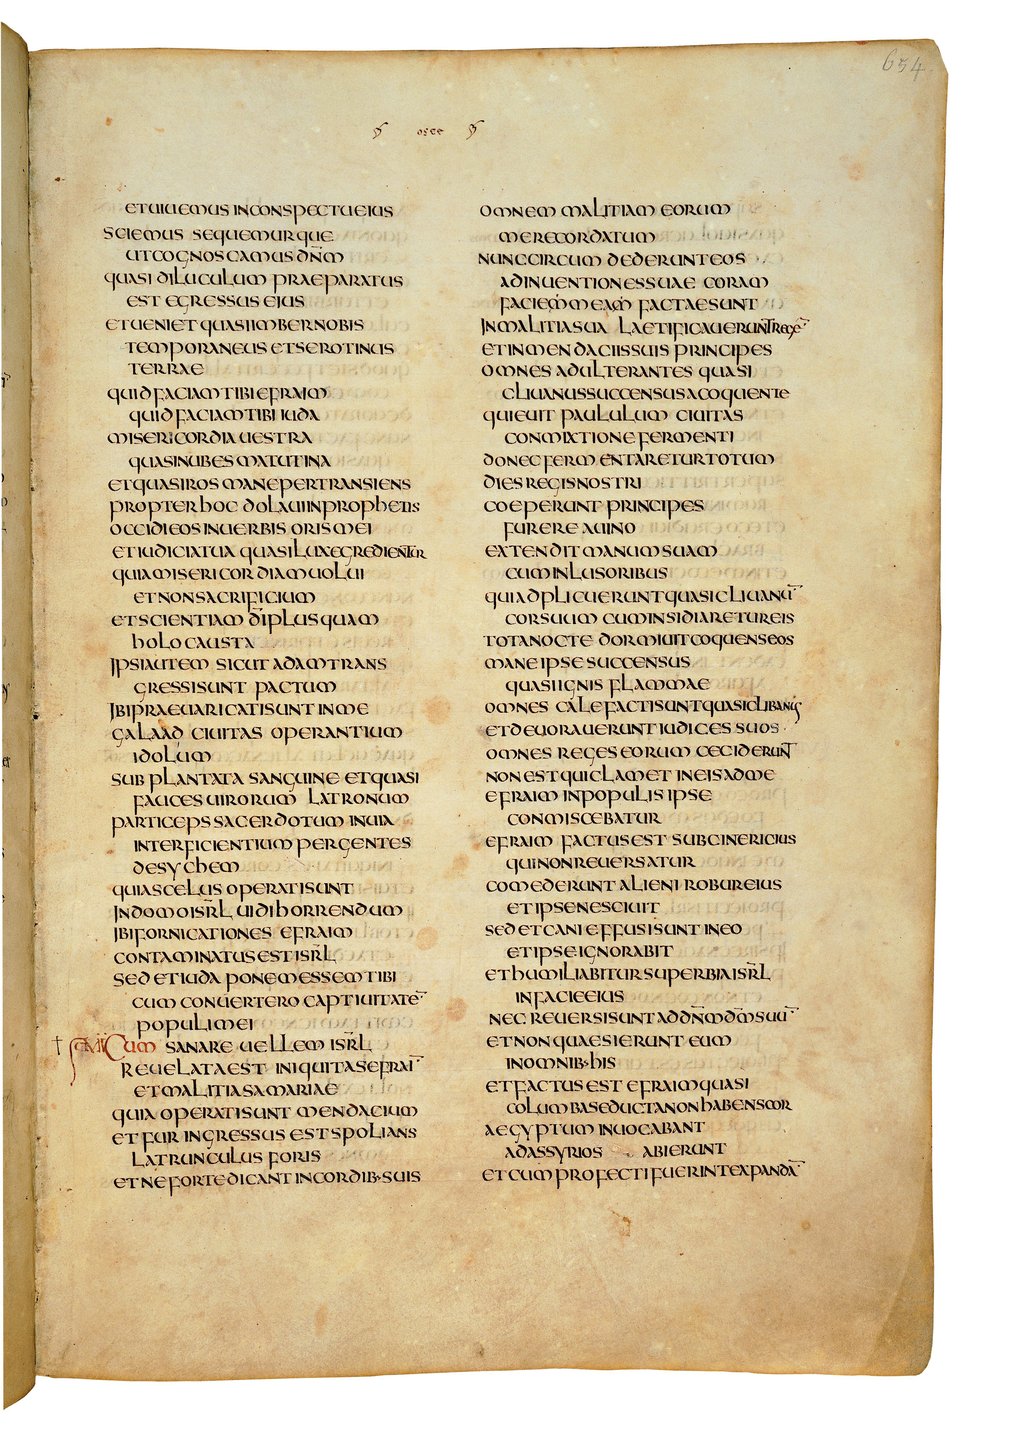 654
osee
ETUIUEMUS INCONSPECTUEIUS
SCIEMUS SEQUEMURQUE
UTCOGNOSCAMUS DN̅M
QUASI DILUCULUM PRAEPARATUS
EST EGRESSUS EIUS
ETUENIET QUASIIMBERNOBIS
TEMPORANEUS ETSEROTINUS
TERRAE
QUIDFACIAMTIBIEFRAIM
QUIDFACIAMTIBI IUDA
MISERICORDIA UESTRA
QUASINUBES MATUTINA
ETQUASIROS MANEPERTRANSIENS
PROPTERHOC DOLAUIINPROPHETIS
OCCIDIEOS INUERBIS ORISMEI
ETIUDICIATUA QUASILUXEGREDIENTUR
QUIAMISERICORDIAMUOLUI
ETNONSACRIFICIUM
ETSCIENTIAM D̅IPLUSQUAM
HOLOCAUSTA
IPSIAUTEM SICUT ADAMTRANS
GRESSISUNT PACTUM
IBIPRAEUARICATISUNT INME
GALAAD CIUITAS OPERANTIUM
IDOLUM
SUBPLANTATA SANGUINE ETQUASI
FAUCES UIRORUM LATRONUM
PARTICEPS SACERDOTUM INUIA
INTERFICIENTIUM PERGENTES
DESYCHEM
QUIASCELUS OPERATISUNT
INDOMOISR̅L UIDIHORRENDUM
IBIFORNICATIONES EFRAIM
CONTAMINATUS ESTISR̅L
SED ETIUDA PONEMESSEMTIBI
CUM CONUERTERO CAPTIUITATE̅
POPULIMEI
VII CUM SANARE UELLEM ISR̅L
REUELATAEST INIQUITASEFRAI̅
ETMALITIASAMARIAE
QUIA OPERATISUNT MENDACIUM
ETFUR INGRESSUS ESTSPOLIANS
LATRUNCULUS FORIS
ETNEFORTEDICANT INCORDIB·SUIS
OMNEM MALITIAM EORUM
MERECORDATUM
NUNCCIRCUM DEDERUNTEOS
ADINUENTIONESSUAE CORAM
FACIEMMEAM FACTAESUNT
INMALITIASUA LAETIFICAUERUNTREGE̅
ETINMENDACIISSUIS PRINCIPES
OMNES ADULTERANTES QUASI
CLIUANUSSUCCENSUSACOQUENTE
QUIEUIT PAULULUM CIUITAS
CONMIXTIONE FERMENTI
DONECFERMENTARETURTOTUM
DIES REGISNOSTRI
COEPERUNT PRINCIPES
FURERE AUINO
EXTENDITMANUMSUAM
CUMINLUSORIBUS
QUIADPLICUERUNTQUASICLIUANU̅
CORSUUM CUMINSIDIARETUREIS
TOTANOCTE DORMIUITCOQUENSEOS
MANEIPSESUCCENSUS
QUASIIGNIS FLAMMAE
OMNES CALEFACTISUNTQUASICLIBANUS
ETDEUORAUERUNT IUDICES SUOS
OMNES REGES EORUM CECIDERUNT
NONESTQUICLAMET INEISADME
EFRAIM INPOPULIS IPSE
CONMISCEBATUR
EFRAIM FACTUSEST SUBCINERICIUS
QUINONREUERSATUR
COMEDERUNT ALIENI ROBUREIUS
ETIPSENESCIUIT
SED ETCANIEFFUSISUNT INEO
ETIPSEIGNORABIT
ETHUMILIABITURSUPERBIAISR̅L
INFACIEEIUS
NEC REUERSISUNTADDN̅MD̅MSUU̅
ETNONQUAESIERUNT EUM
INOMNIB·HIS
ETFACTUSEST EFRAIMQUASI
COLUMBASEDUCTANONHABENSCOR
AEGYPTUM INUOCABANT
ADASSYRIOS ABIERUNT
ETCUMPROFECTIFUERINTEXPANDA̅